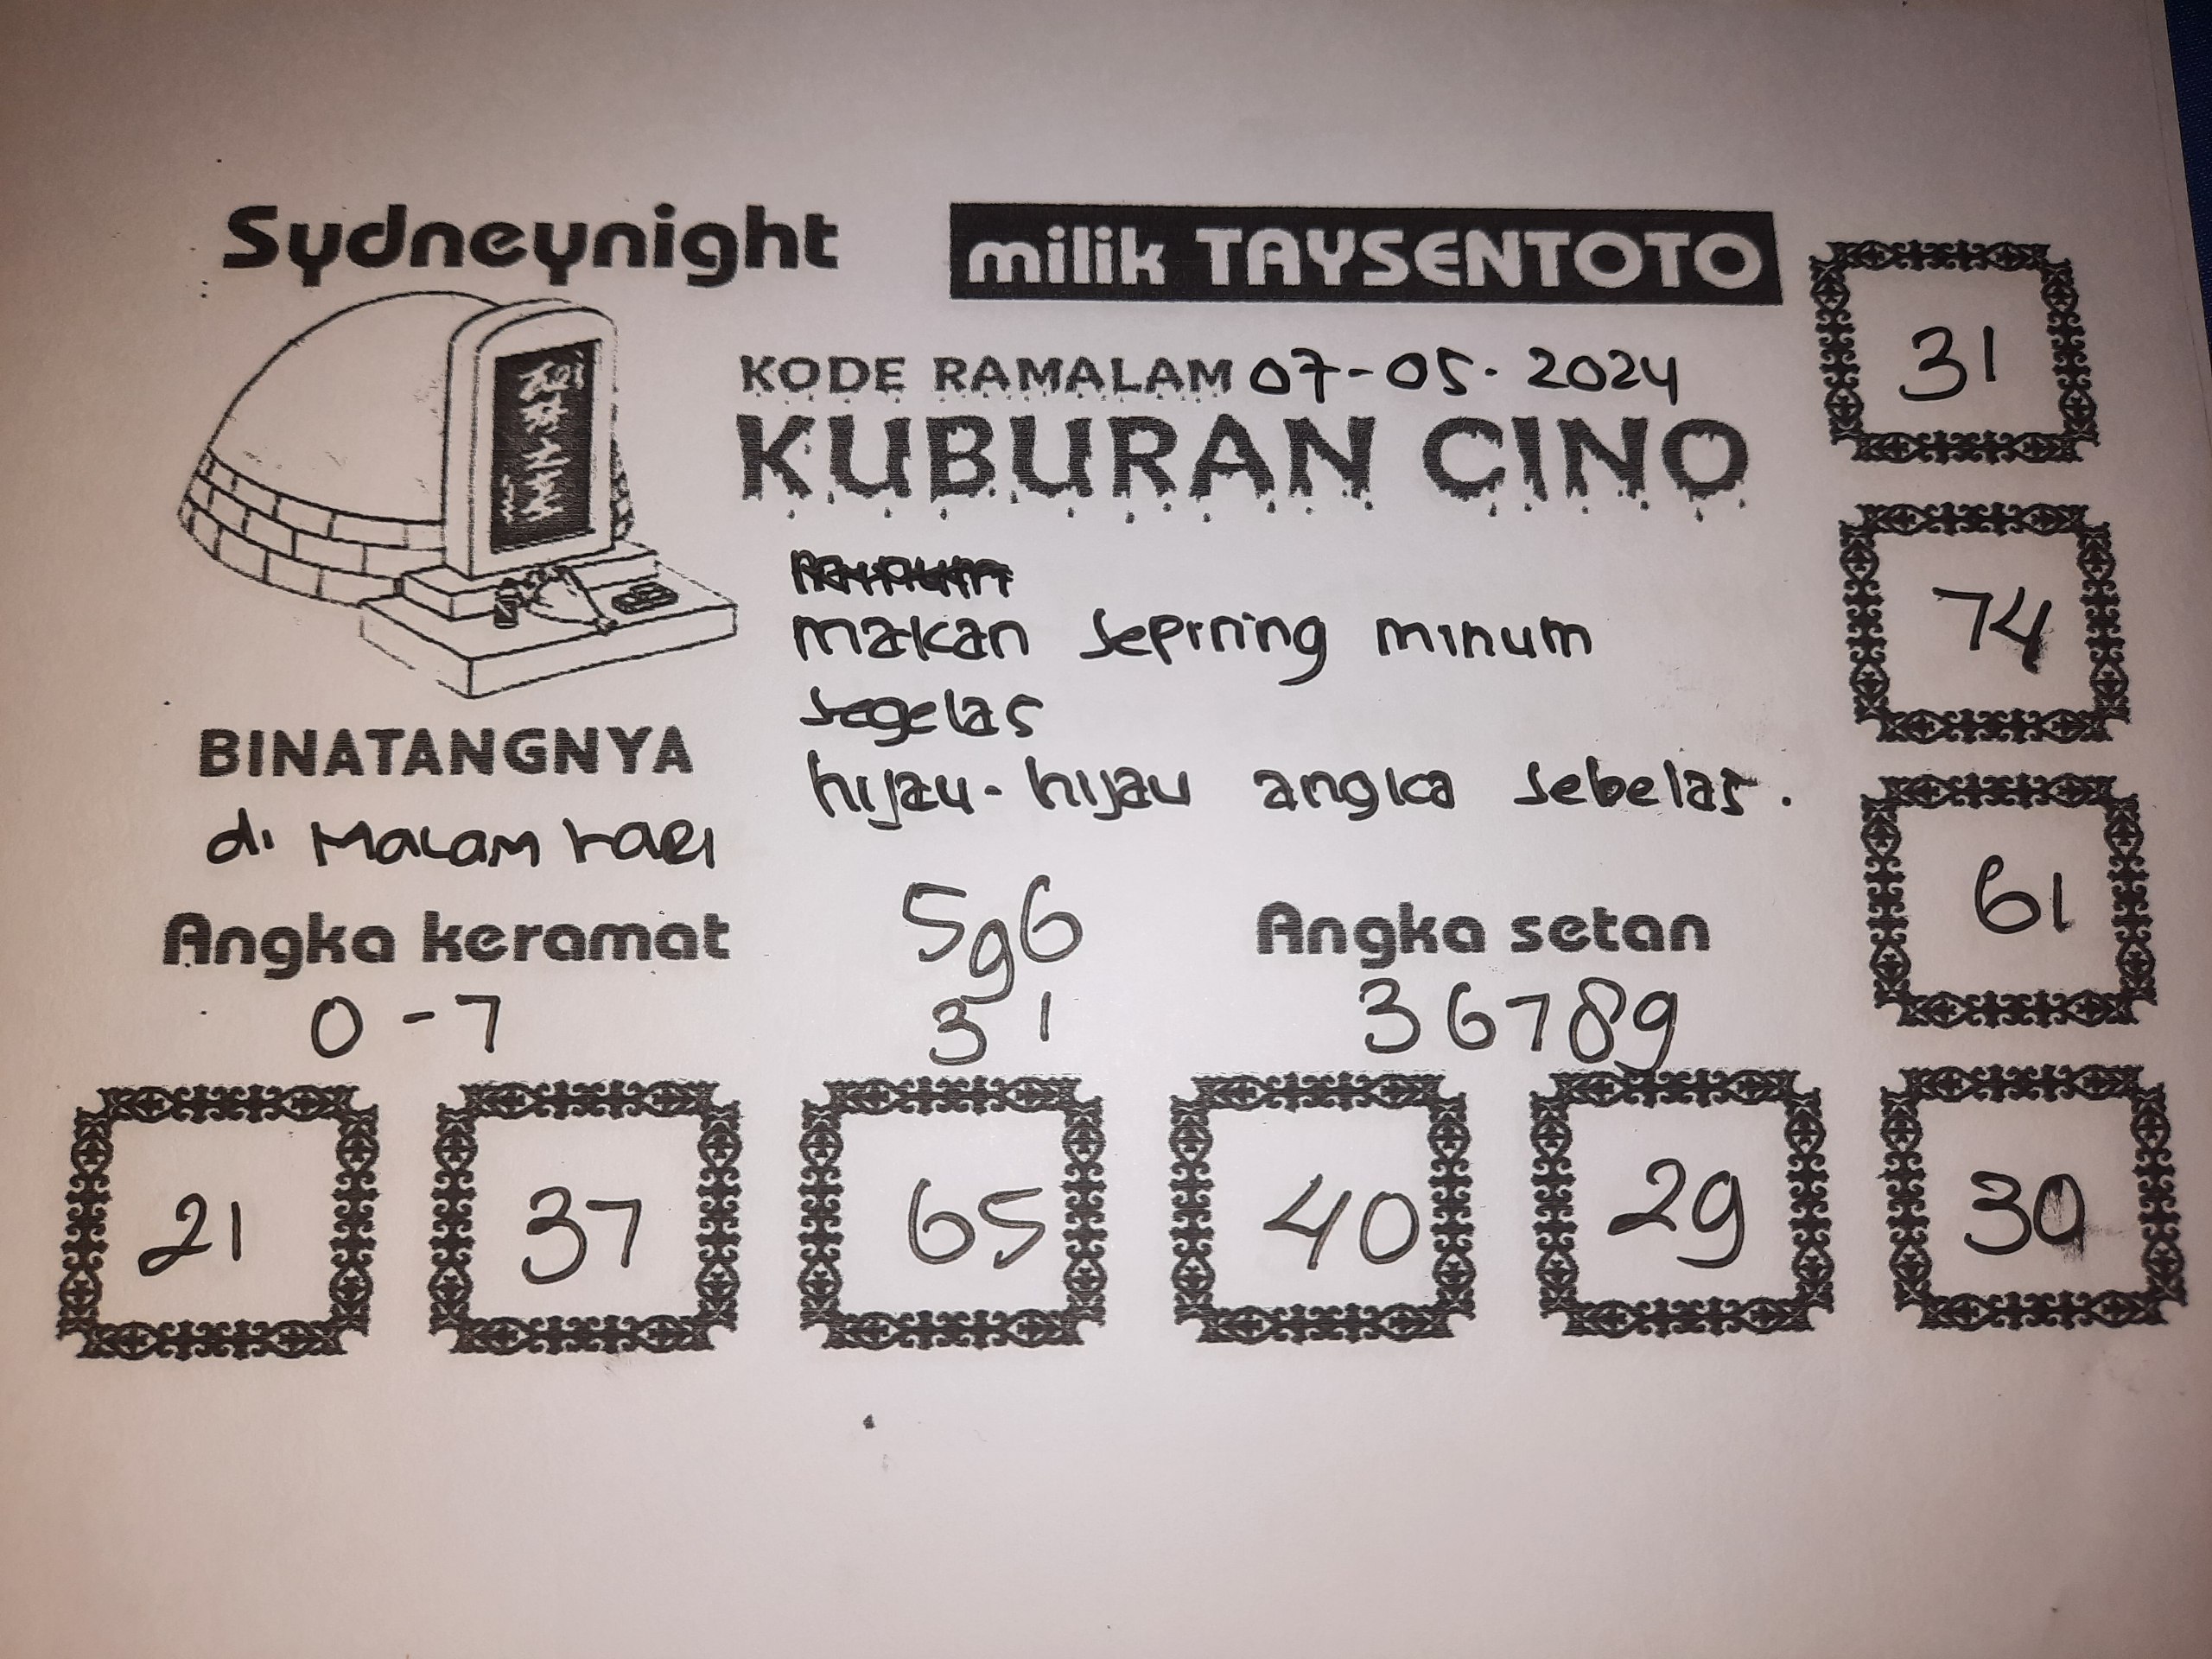 Sydneynight
milik TAYSENTOTO
KODE RAMALAM 07-05-2024
KUBURAN CINO
makan sepirring minum
segelas
hijau-hijau angka sebelas.
BINATANGNYA
di MALAM HARI
Angka keramat
0-7
596
31
Angka setan
36789
31
74
61
21
37
65
40
29
30